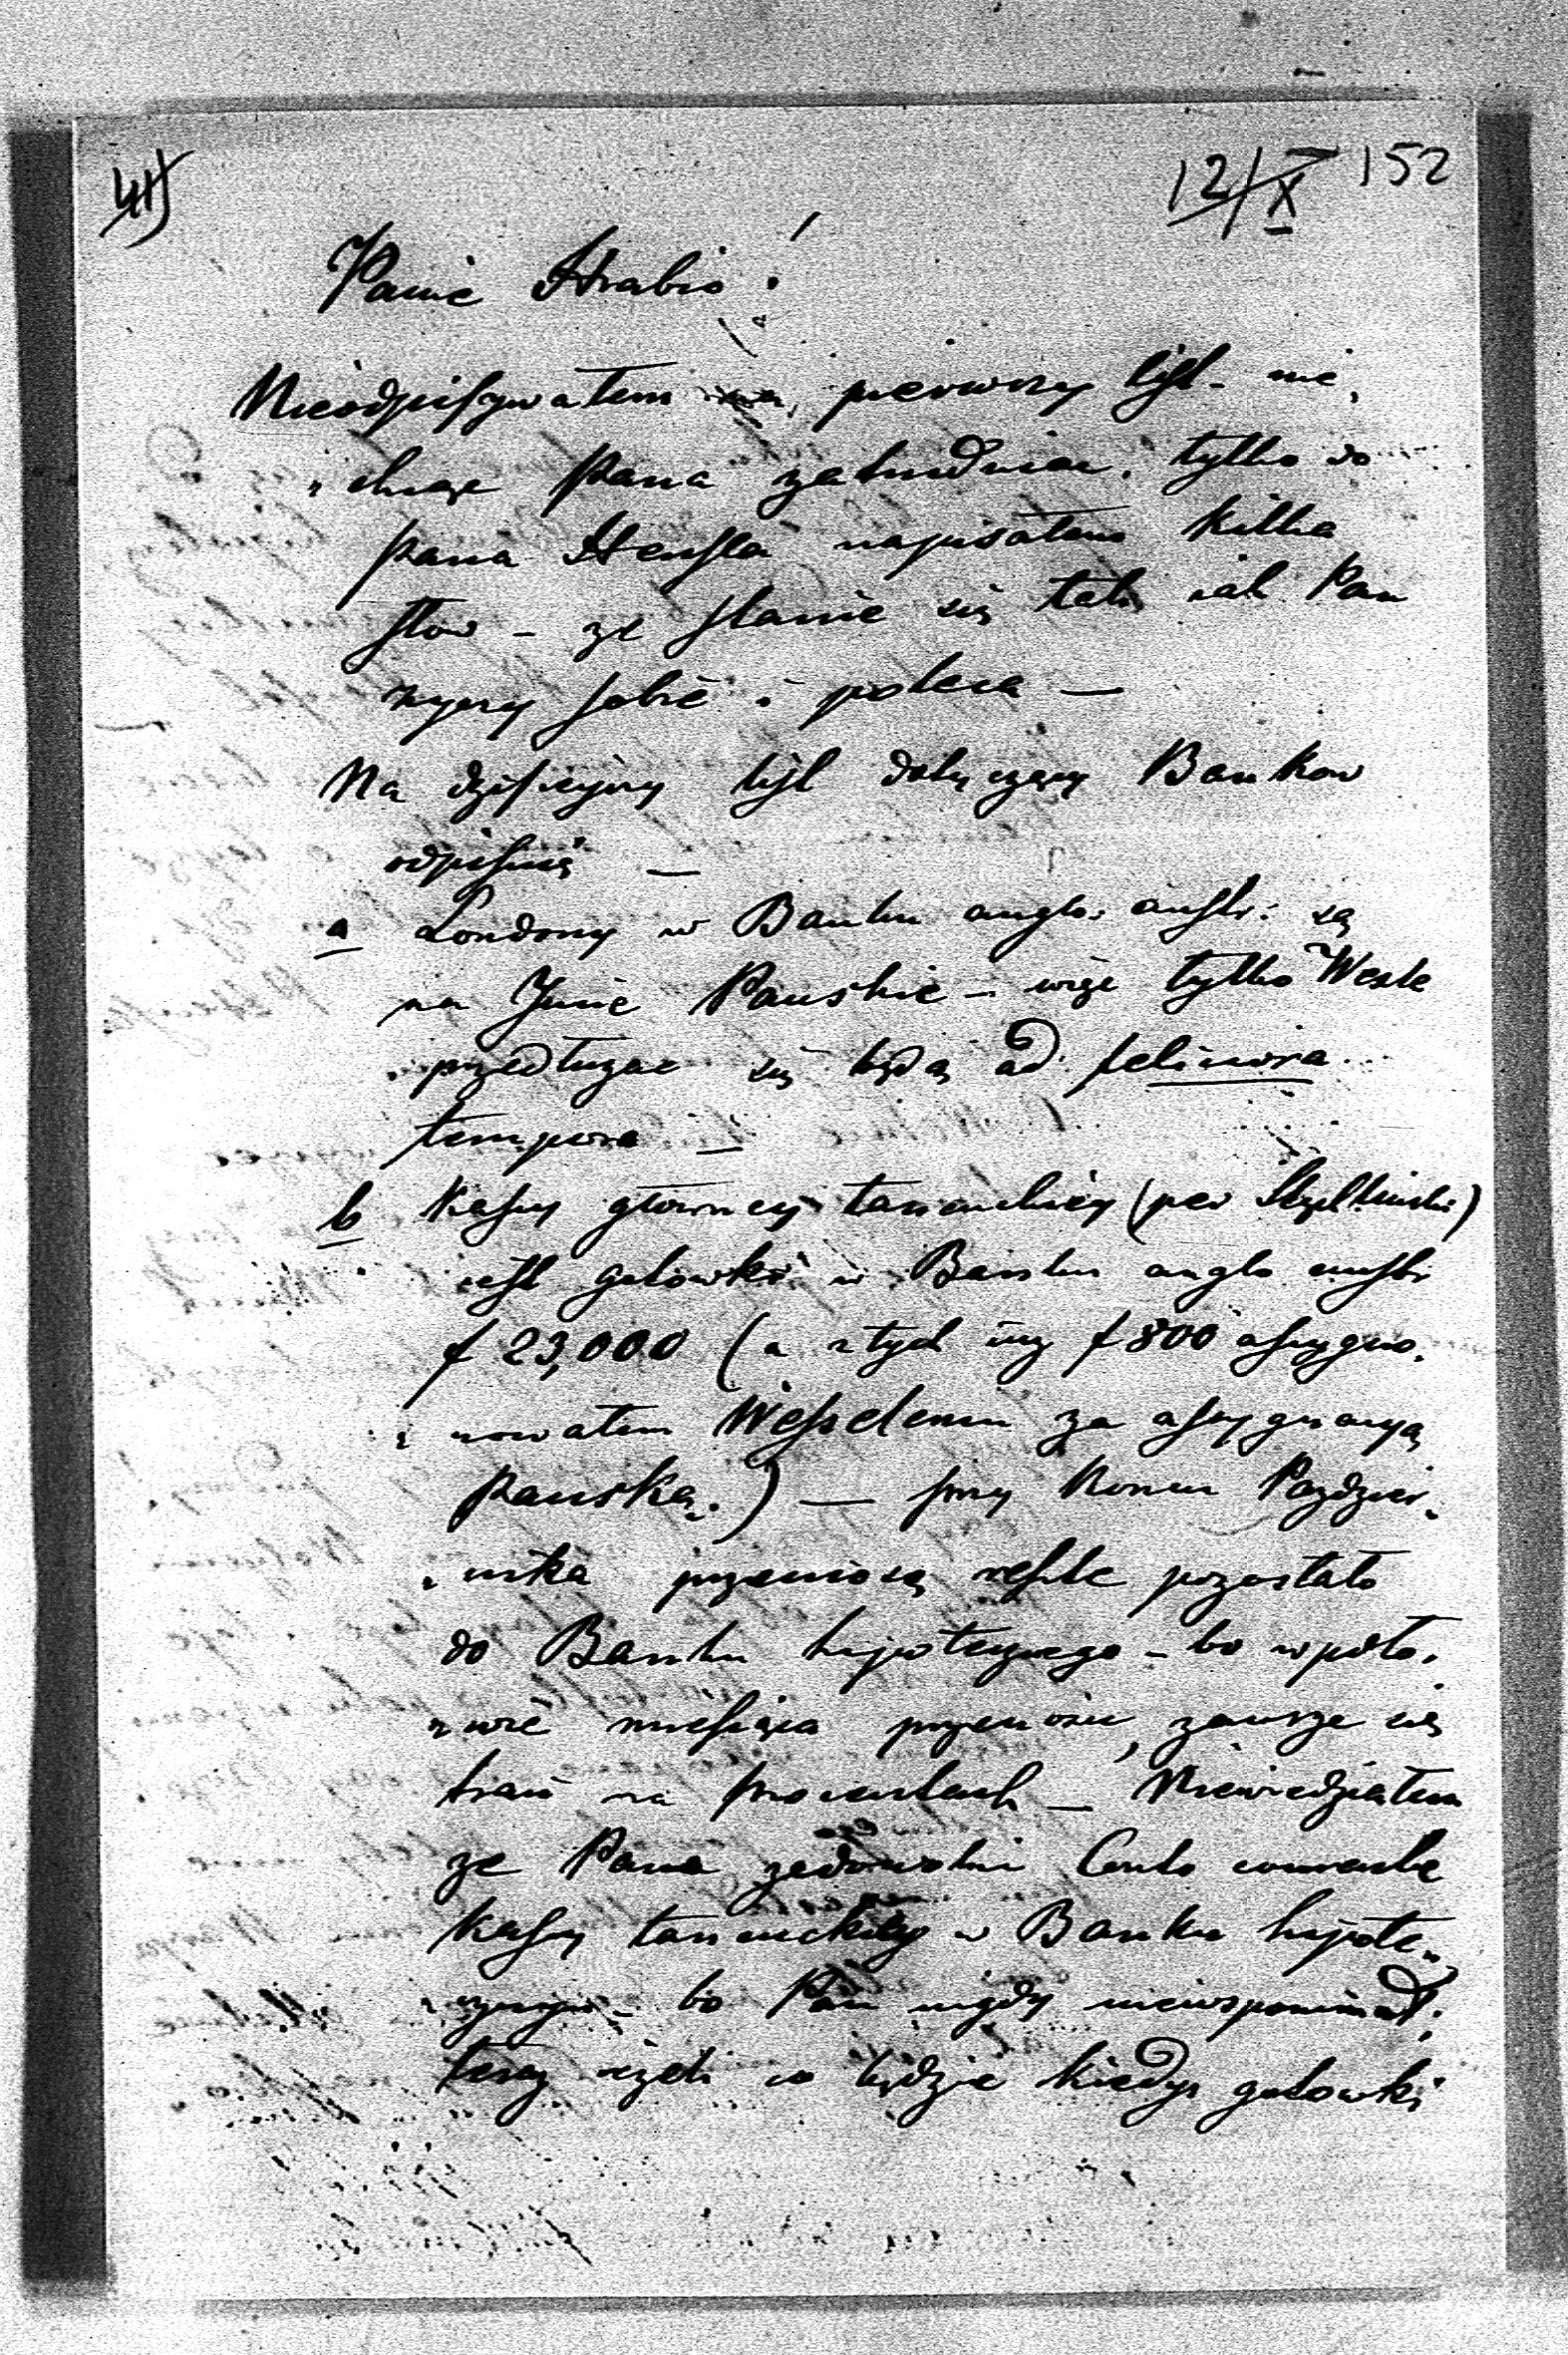 12/X 152
Panie Hrabio!
Nieodpisywałem na pierwszy list - nie
chcąc Pana zatrudniać, tylko do
pana Hensla napisałem kilka
słow - ze stanie się tak iak Pan
życzy sobie i poleca —
Na dzisieyszy list dotyczący Bankow
odpisuię —
a Londony w Banku anglo: austr: są
na Imie Pańskie - więc tylko Wexle
przedłużac się będą ad feliciora
tempora —
b Kassy głowney łancuckiey (per
iest gotowki w Banku anglo austr
f 23,000 (a z tych iuż f 800 assygno-
wowałem Wesselemu za assygnacyą
Pańską.) — przy koncu Pazdzier-
nika przeniosą resztę pozostało
do Banku hypotecznego - bo w poło-
wie miesiąca przenosić, zawsze się
traci na procentach — Niewiedziałem
ze Pana zadowolni Conto corrente
kassy łancuckiey w Banku hypote-
cznym - bo Pan nigdy niewspominał;
teraz ieżeli co będzie kiedy gotowki